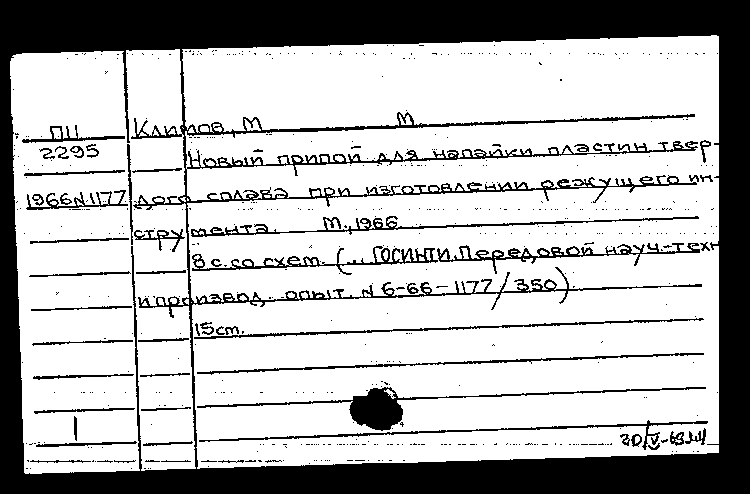 ПН Климов, М М.
2295 Новый припой для напайки пластин твер-
1966 N 1177 дого сплава при изготовлении режущего ин-
струмента. М., 1966.
8 с. со схем. (.. ГОСИНТИ. Передовой науч-техн
и производ. опыт. N 6-66-1177/350)
15 cm.
1
30/V-69